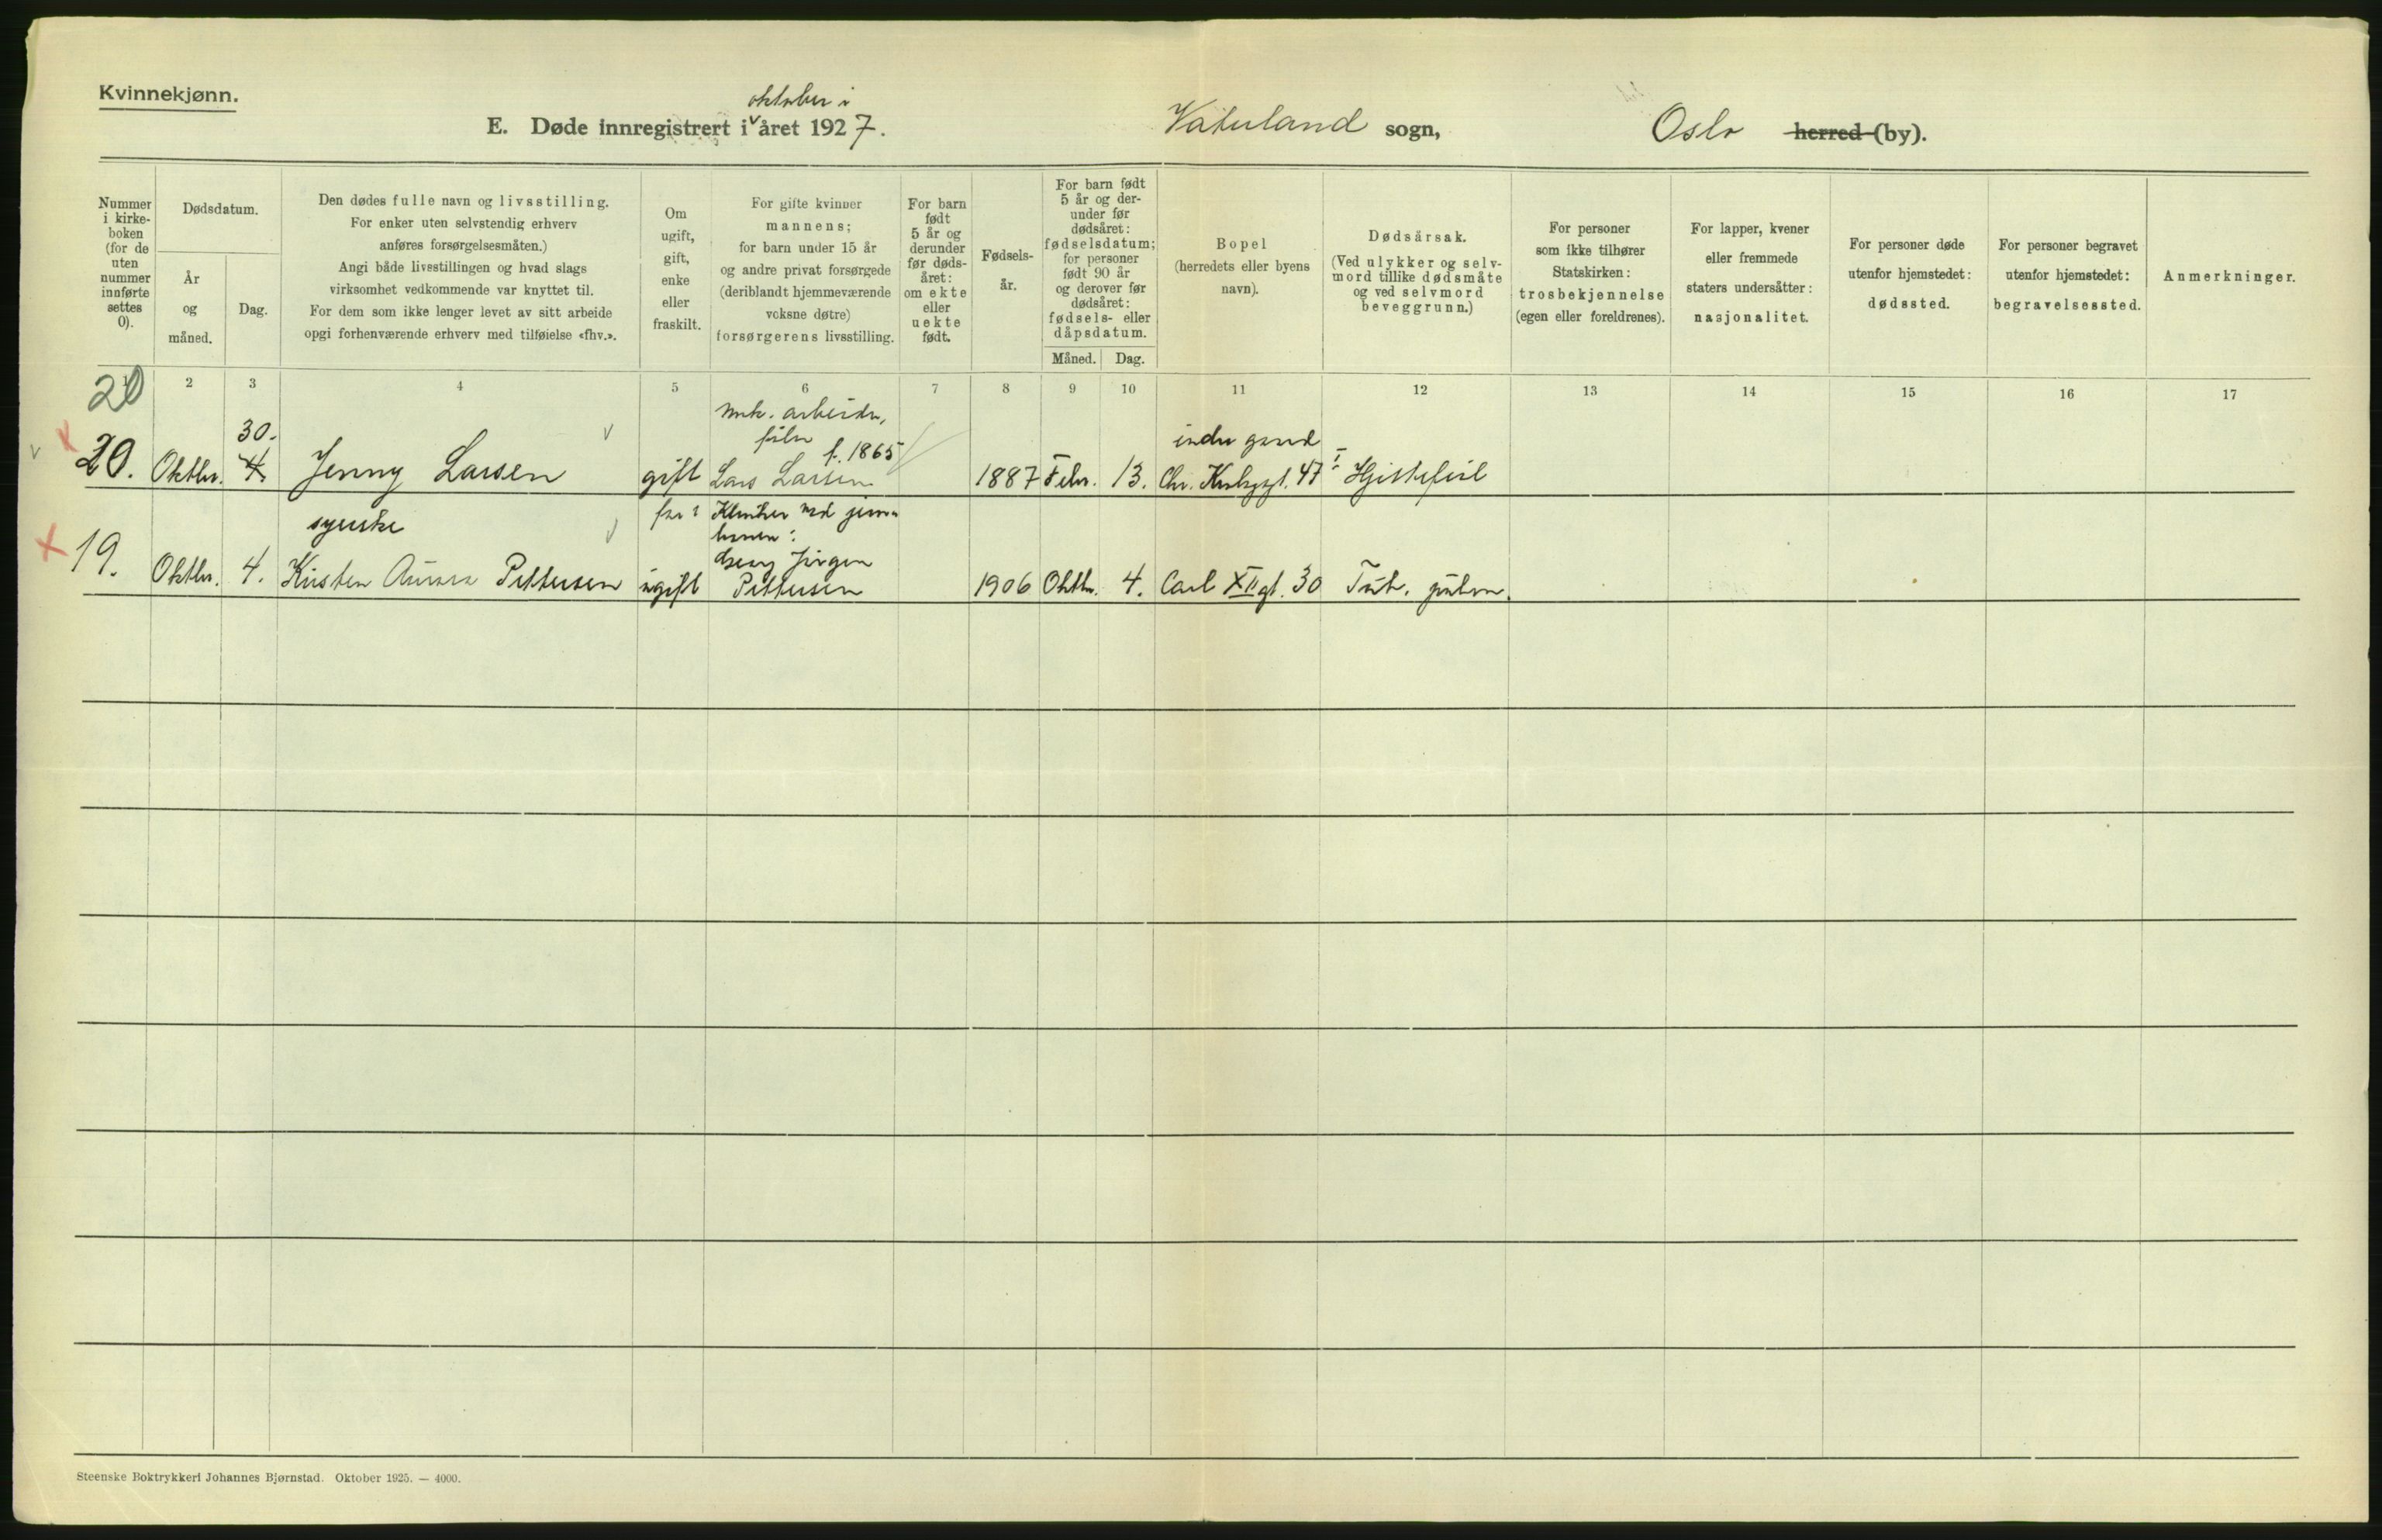 Kvinnekjønn.
oktober i
E. Døde innregistrert i v året 1927. Vaterland sogn, Oslo herred (by).
Nummer i kirke-boken (for de uten nummer innførte settes 0).
Dødsdatum.
År og måned.
Dag.
Den dødes fulle navn og livsstilling.
For enker uten selvstendig erhverv
anføres forsørgelsesmåten.)
Angi både livsstillingen og hvad slags
virksomhet vedkommende var knyttet til.
For dem som ikke lenger levet av sitt arbeide
opgi forhenværende erhverv med tilføielse «fhv.».
Om
ugift,
gift,
enke
eller
fraskilt.
For gifte kvinner
mannens;
for barn under 15 år
og andre privat forsørgede
(deriblandt hjemmeværende
voksne døtre)
forsørgerens livsstilling.
For barn
født
5 år og
derunder
før døds-
året:
om ekte
eller
uekte
født.
Fødsels-
år.
For barn født
5 år og der-
under før
dødsåret:
fødselsdatum;
for personer
født 90 år
og derover før
dødsåret:
fødsels- eller
dåpsdatum.
Måned. Dag.
Bopel
(herredets eller byens
navn).
Dødsårsak.
(Ved ulykker og selv-
mord tillike dødsmåte
og ved selvmord
beveggrunn.)
For personer
som ikke tilhører
Statskirken:
trosbekjennelse
(egen eller foreldrenes).
For lapper, kvener
eller fremmede
staters undersåtter:
nasjonalitet.
For personer døde
utenfor hjemstedet:
dødssted.
For personer begravet
utenfor hjemstedet:
begravelsessted.
Anmerkninger.
20 2 3 4 5 6 7 8 9 10 11 12 13 14 15 16 17
mek. arbeider,
30. filer indre gaard
f. 1865
20. Oktbr. 4. Jenny Larsen gift Lars Larsen 1887 Febr. 13. Chr. Krohgsgt. 47 I Hjertefeil
syerske far: Klinker ved jern-
banen:
Georg Jørgen
19. Oktbr. 4. Kirsten Aurora Pettersen ugift Pettersen 1906 Oktbr. 4. Carl XII gt. 30 Tub. pulm.
Steenske Boktrykkeri Johannes Bjørnstad. Oktober 1925. — 4000.